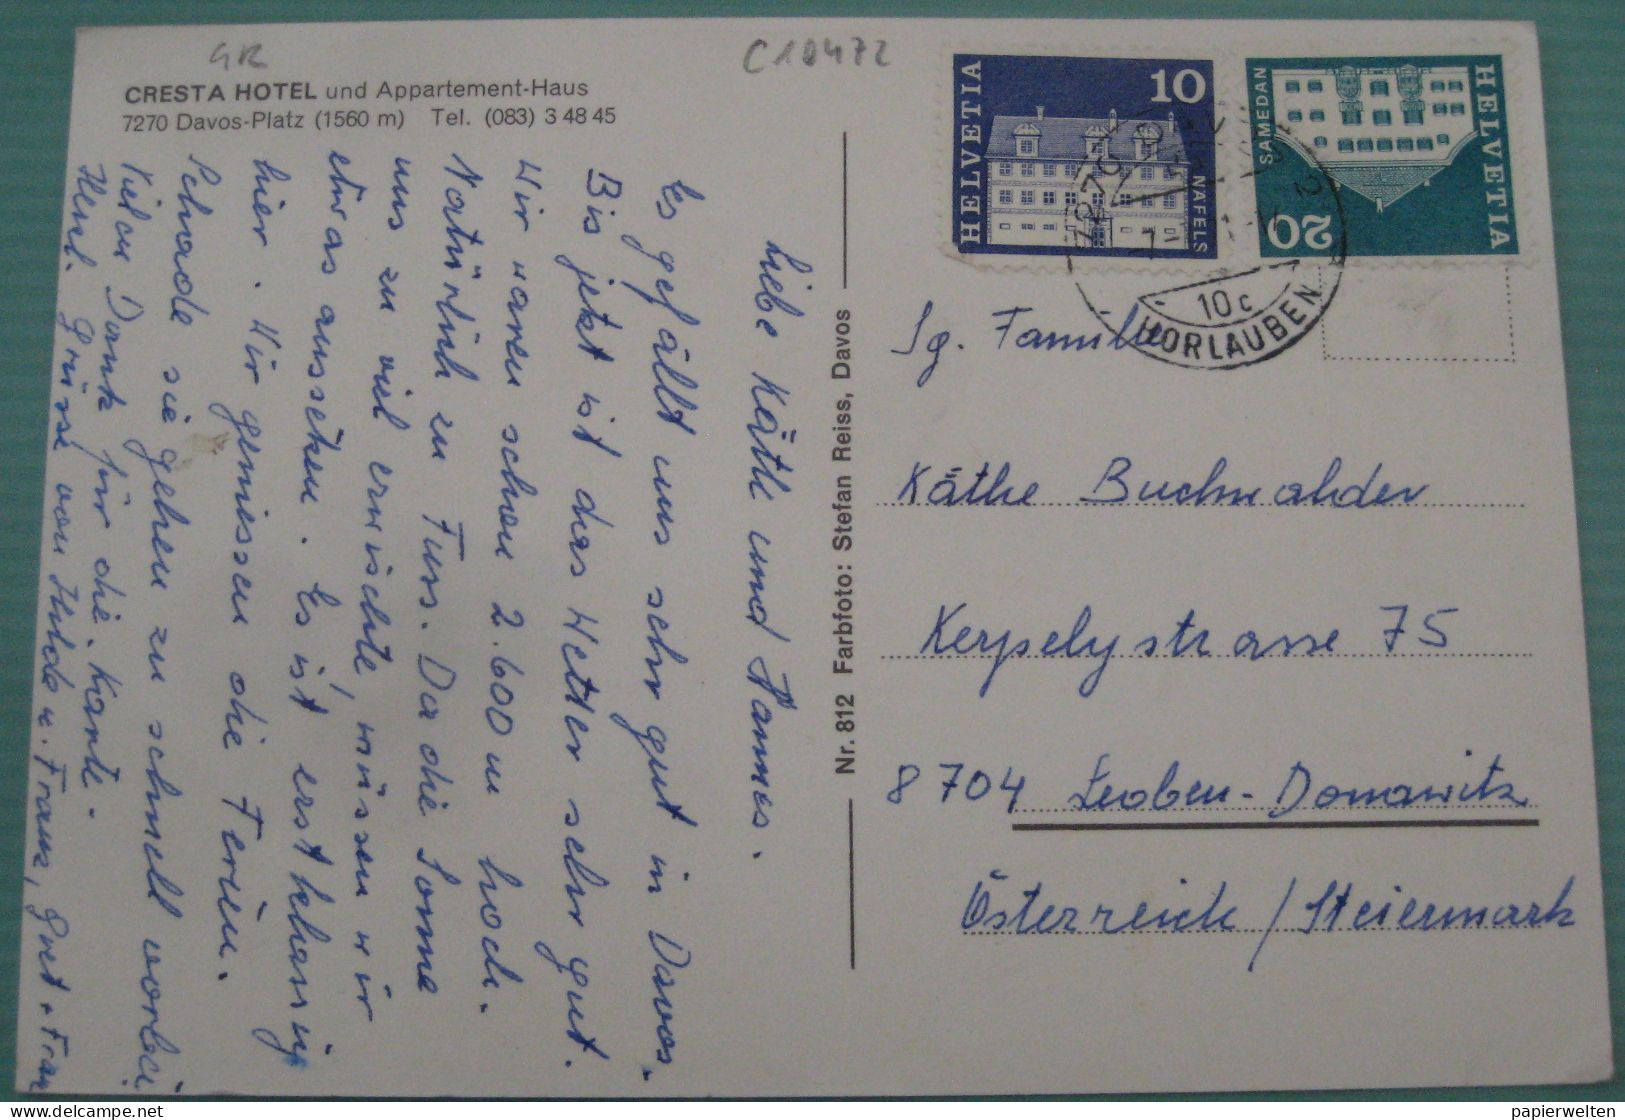 GR
C10472
CRESTA HOTEL und Appartement-Haus
7270 Davos-Platz (1560 m) Tel. (083) 3 48 45
Liebe Käthe und Hannes.
Es gefällt uns sehr gut in Davos.
Bis jetzt ist das Wetter sehr gut.
Wir waren schon 2.600 m hoch.
Natürlich zu Fuss. Da die Sonne
uns zu viel erwischte, müssen wir
etwas aussetzen. Es ist erst lehanig
hier. Wir geniessen die Ferien.
Schade sie gehen zu schnell vorbei
Vielen Dank für die Karte.
Herzl. Grüsse von Hilda u. Franz, Gret + Fran
Nr. 812 Farbfoto: Stefan Reiss, Davos
HELVETIA
10
NÄFELS
HELVETIA
20
SAMEDAN
7270 DAVOS 2
10c
HORLAUBEN
Sg. Familie
Käthe Buchwalder
Kerpelystrasse 75
8704 Leoben-Donawitz
Österreich/Steiermark
papierwelten